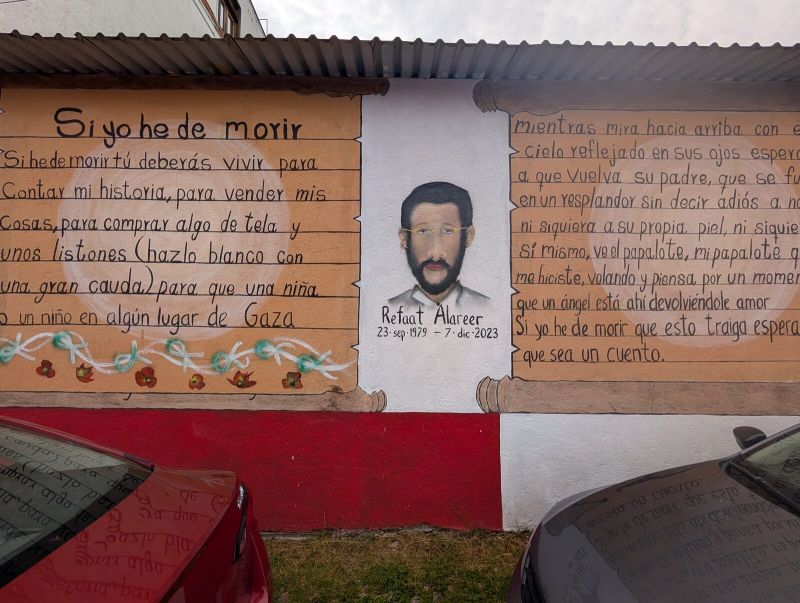 Si yo he de morir
Si he de morir tú deberás vivir para
Contar mi historia, para vender mis
Cosas, para comprar algo de tela y
unos listones (hazlo blanco con
una gran cauda) para que una niña
o un niño en algún lugar de Gaza
Refaat Alareer
23·sep·1979 – 7·dic·2023
mientras mira hacia arriba con e
cielo reflejado en sus ojos espera
a que vuelva su padre, que se fu
en un resplandor sin decir adiós a na
ni siquiera a su propia piel, ni siquie
Sí mismo, ve el papalote, mi papalote q
me hiciste, volando y piensa por un momen
que un ángel está ahí devolviéndole amor
Si yo he de morir que esto traiga espera
que sea un cuento.